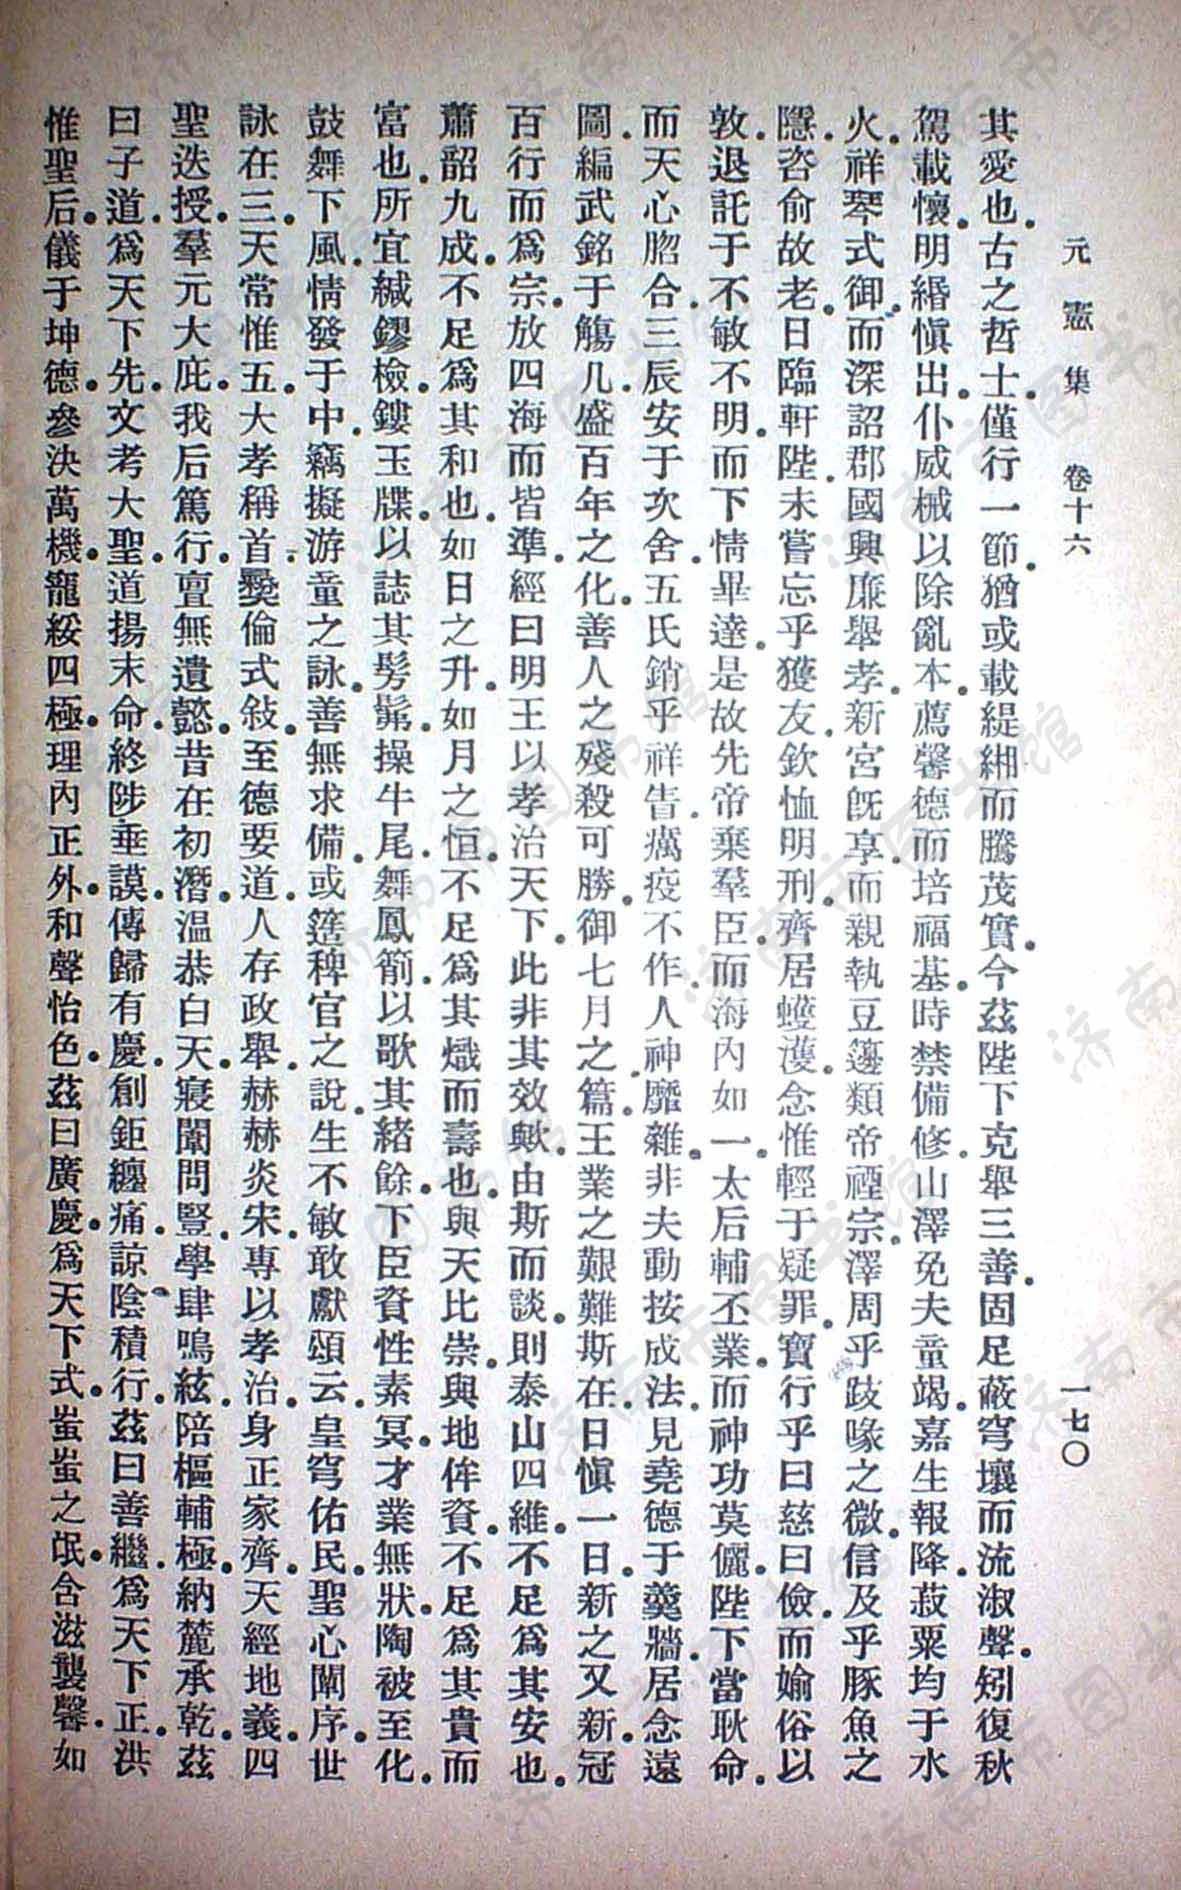 元憲集 卷十六 一七〇
其愛也古之哲士僅行一節猶或載緹緗而騰茂實今茲陛下克舉三善固足蔽穹壤而流淑聲矧復秋
駕載懷明緡愼出仆威械以除亂本薦馨德而培福基時禁備修山澤免夫童竭嘉生報降菽粟均于水
火祥琴式御而深詔郡國興廉舉孝新宮旣享而親執豆籩類帝禋宗澤周乎跂喙之微信及乎豚魚之
隱咨俞故老日臨軒陛未嘗忘乎獲友欽恤明刑齊居蠖濩念惟輕于疑罪寶行乎曰慈曰儉而媮俗以
敦退託于不敏不明而下情畢達是故先帝棄羣臣而海內如一太后輔丕業而神功莫儷陛下當耿命
而天心脗合三辰安于次舍五氏銷乎祥眚癘疫不作人神靡雜非夫動按成法見堯德于羹牆居念遠
圖編武銘于觴几盛百年之化善人之殘殺可勝御七月之篇王業之艱難斯在日愼一日新之又新冠
百行而爲宗放四海而皆準經曰明王以孝治天下此非其效歟由斯而談則泰山四維不足爲其安也
蕭韶九成不足爲其和也如日之升如月之恒不足爲其熾而壽也與天比崇與地侔資不足爲其貴而
富也所宜緘鏐檢鏤玉牒以誌其髣髴操牛尾舞鳳箾以歌其緒餘下臣資性素冥才業無狀陶被至化
鼓舞下風情發于中竊擬游童之詠善無求備或簉稗官之說生不敏敢獻頌云皇穹佑民聖心闡序世
詠在三天常惟五大孝稱首彝倫式敍至德要道人存政舉赫赫炎宋專以孝治身正家齊天經地義四
聖迭授羣元大庇我后篤行亶無遺懿昔在初潛溫恭白天寢闈問豎學肆鳴絃陪樞輔極納麓承乾茲
曰子道爲天下先文考大聖道揚末命終陟垂謨傳歸有慶創鉅纏痛諒陰積行茲曰善繼爲天下正洪
惟聖后儀于坤德參決萬機寵綏四極理內正外和聲怡色茲曰廣慶爲天下式蚩蚩之氓含滋襲馨如